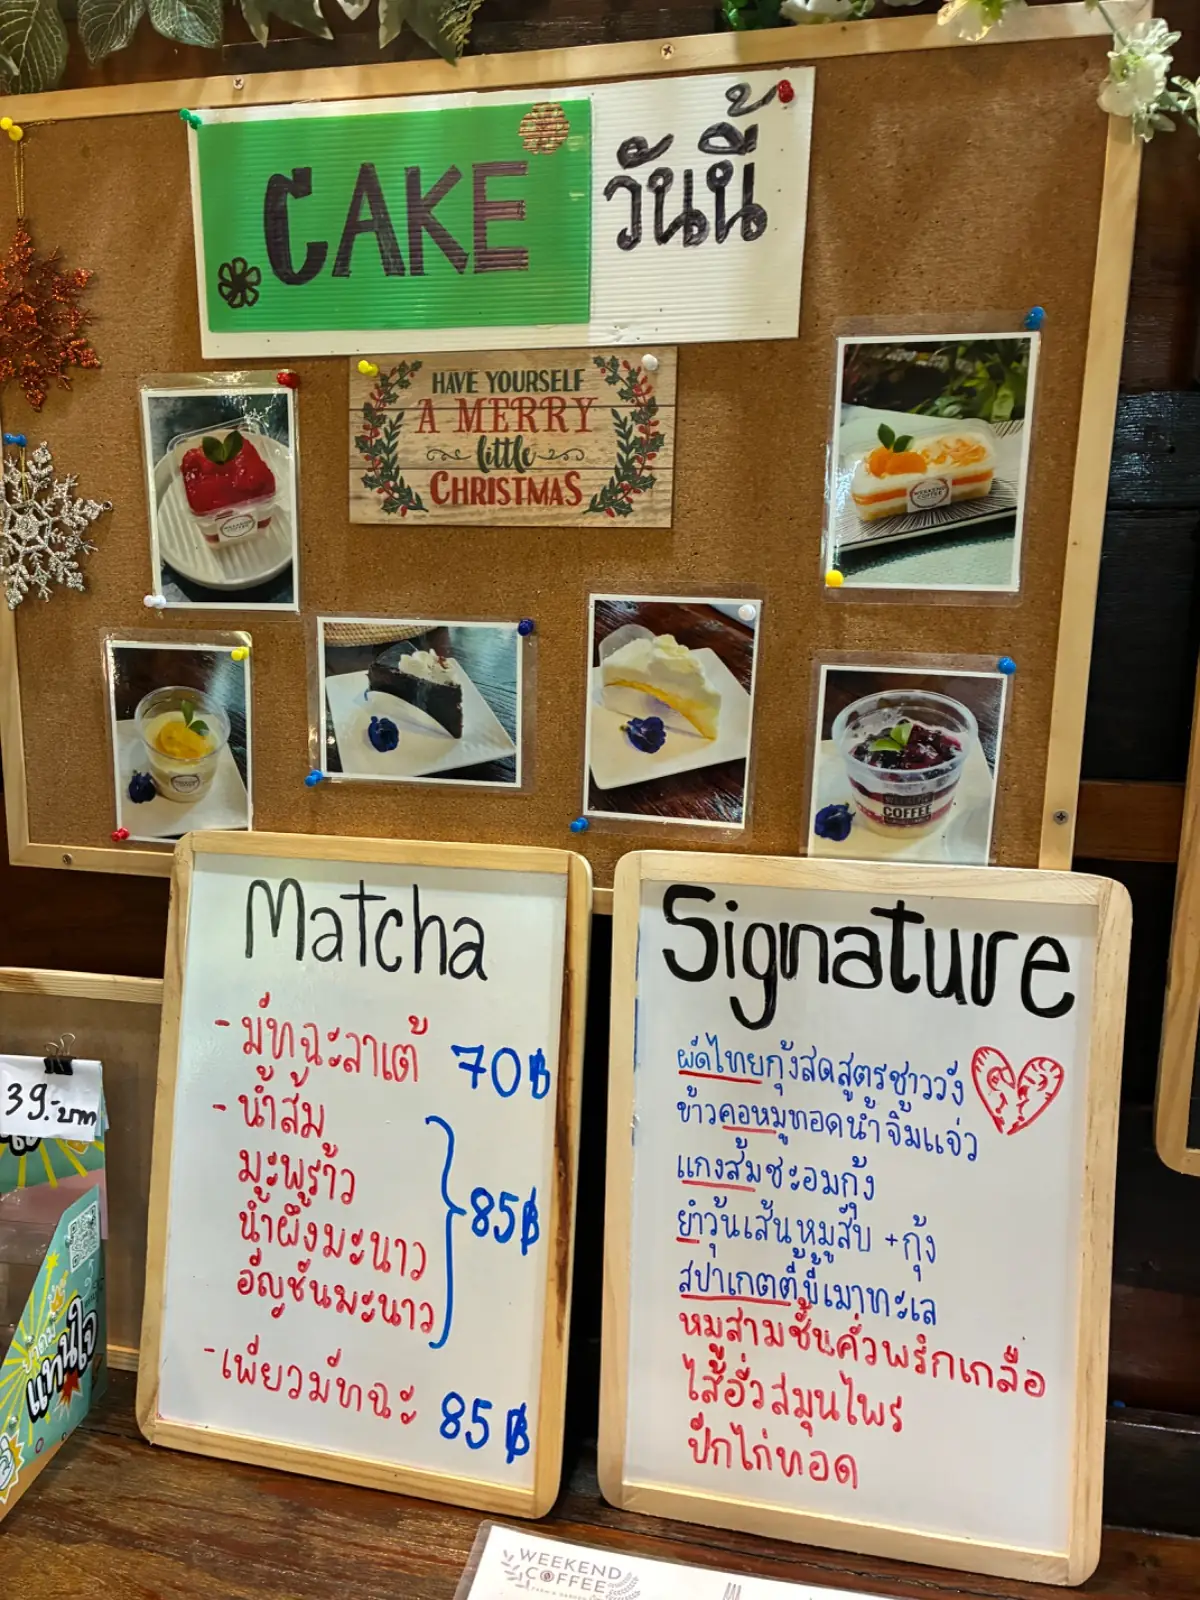 CAKE วันนี้
HAVE YOURSELF
A MERRY
little
CHRISTMAS
WEEKEND
COFFEE
COFFEE
Matcha
- มัทฉะลาเต้ 70฿
- น้ำส้ม
มะพร้าว
น้ำผึ้งมะนาว
อัญชันมะนาว
85฿
- เพียวมัทฉะ 85฿
Signature
ผัดไทยกุ้งสดสูตรชาววัง
ข้าวคอหมูทอดน้ำจิ้มแจ่ว
แกงส้มชะอมกุ้ง
ยำวุ้นเส้นหมูสับ +กุ้ง
สปาเกตตี้ขี้เมาทะเล
หมูสามชั้นคั่วพริกเกลือ
ไส้อั่วสมุนไพร
ปีกไก่ทอด
39.-บาท
แทนใจ
WEEKEND
COFFEE